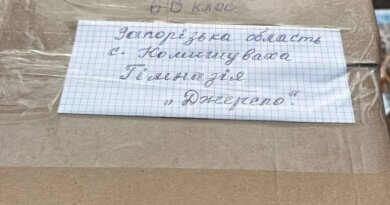 6-Б клас
Запорізька область
с. Комишуваха
Гімназія
„Джерело“.